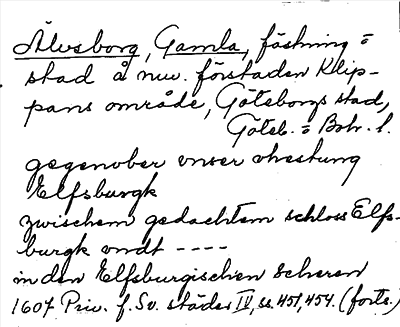 Älvsborg, Gamla, fästning o
stad å nuv. förstaden Klip-
pans område, Göteborgs stad,
Göteb. o Boh. l.
gegenober unser vhestung
Elfsburgk
zwischem gedachtem schloss Elfs-
burgk undt ----
in den Elfsburgischen Scheren
1607 Priv. f. Sv. städer IV, ss. 451, 454. (forts.)